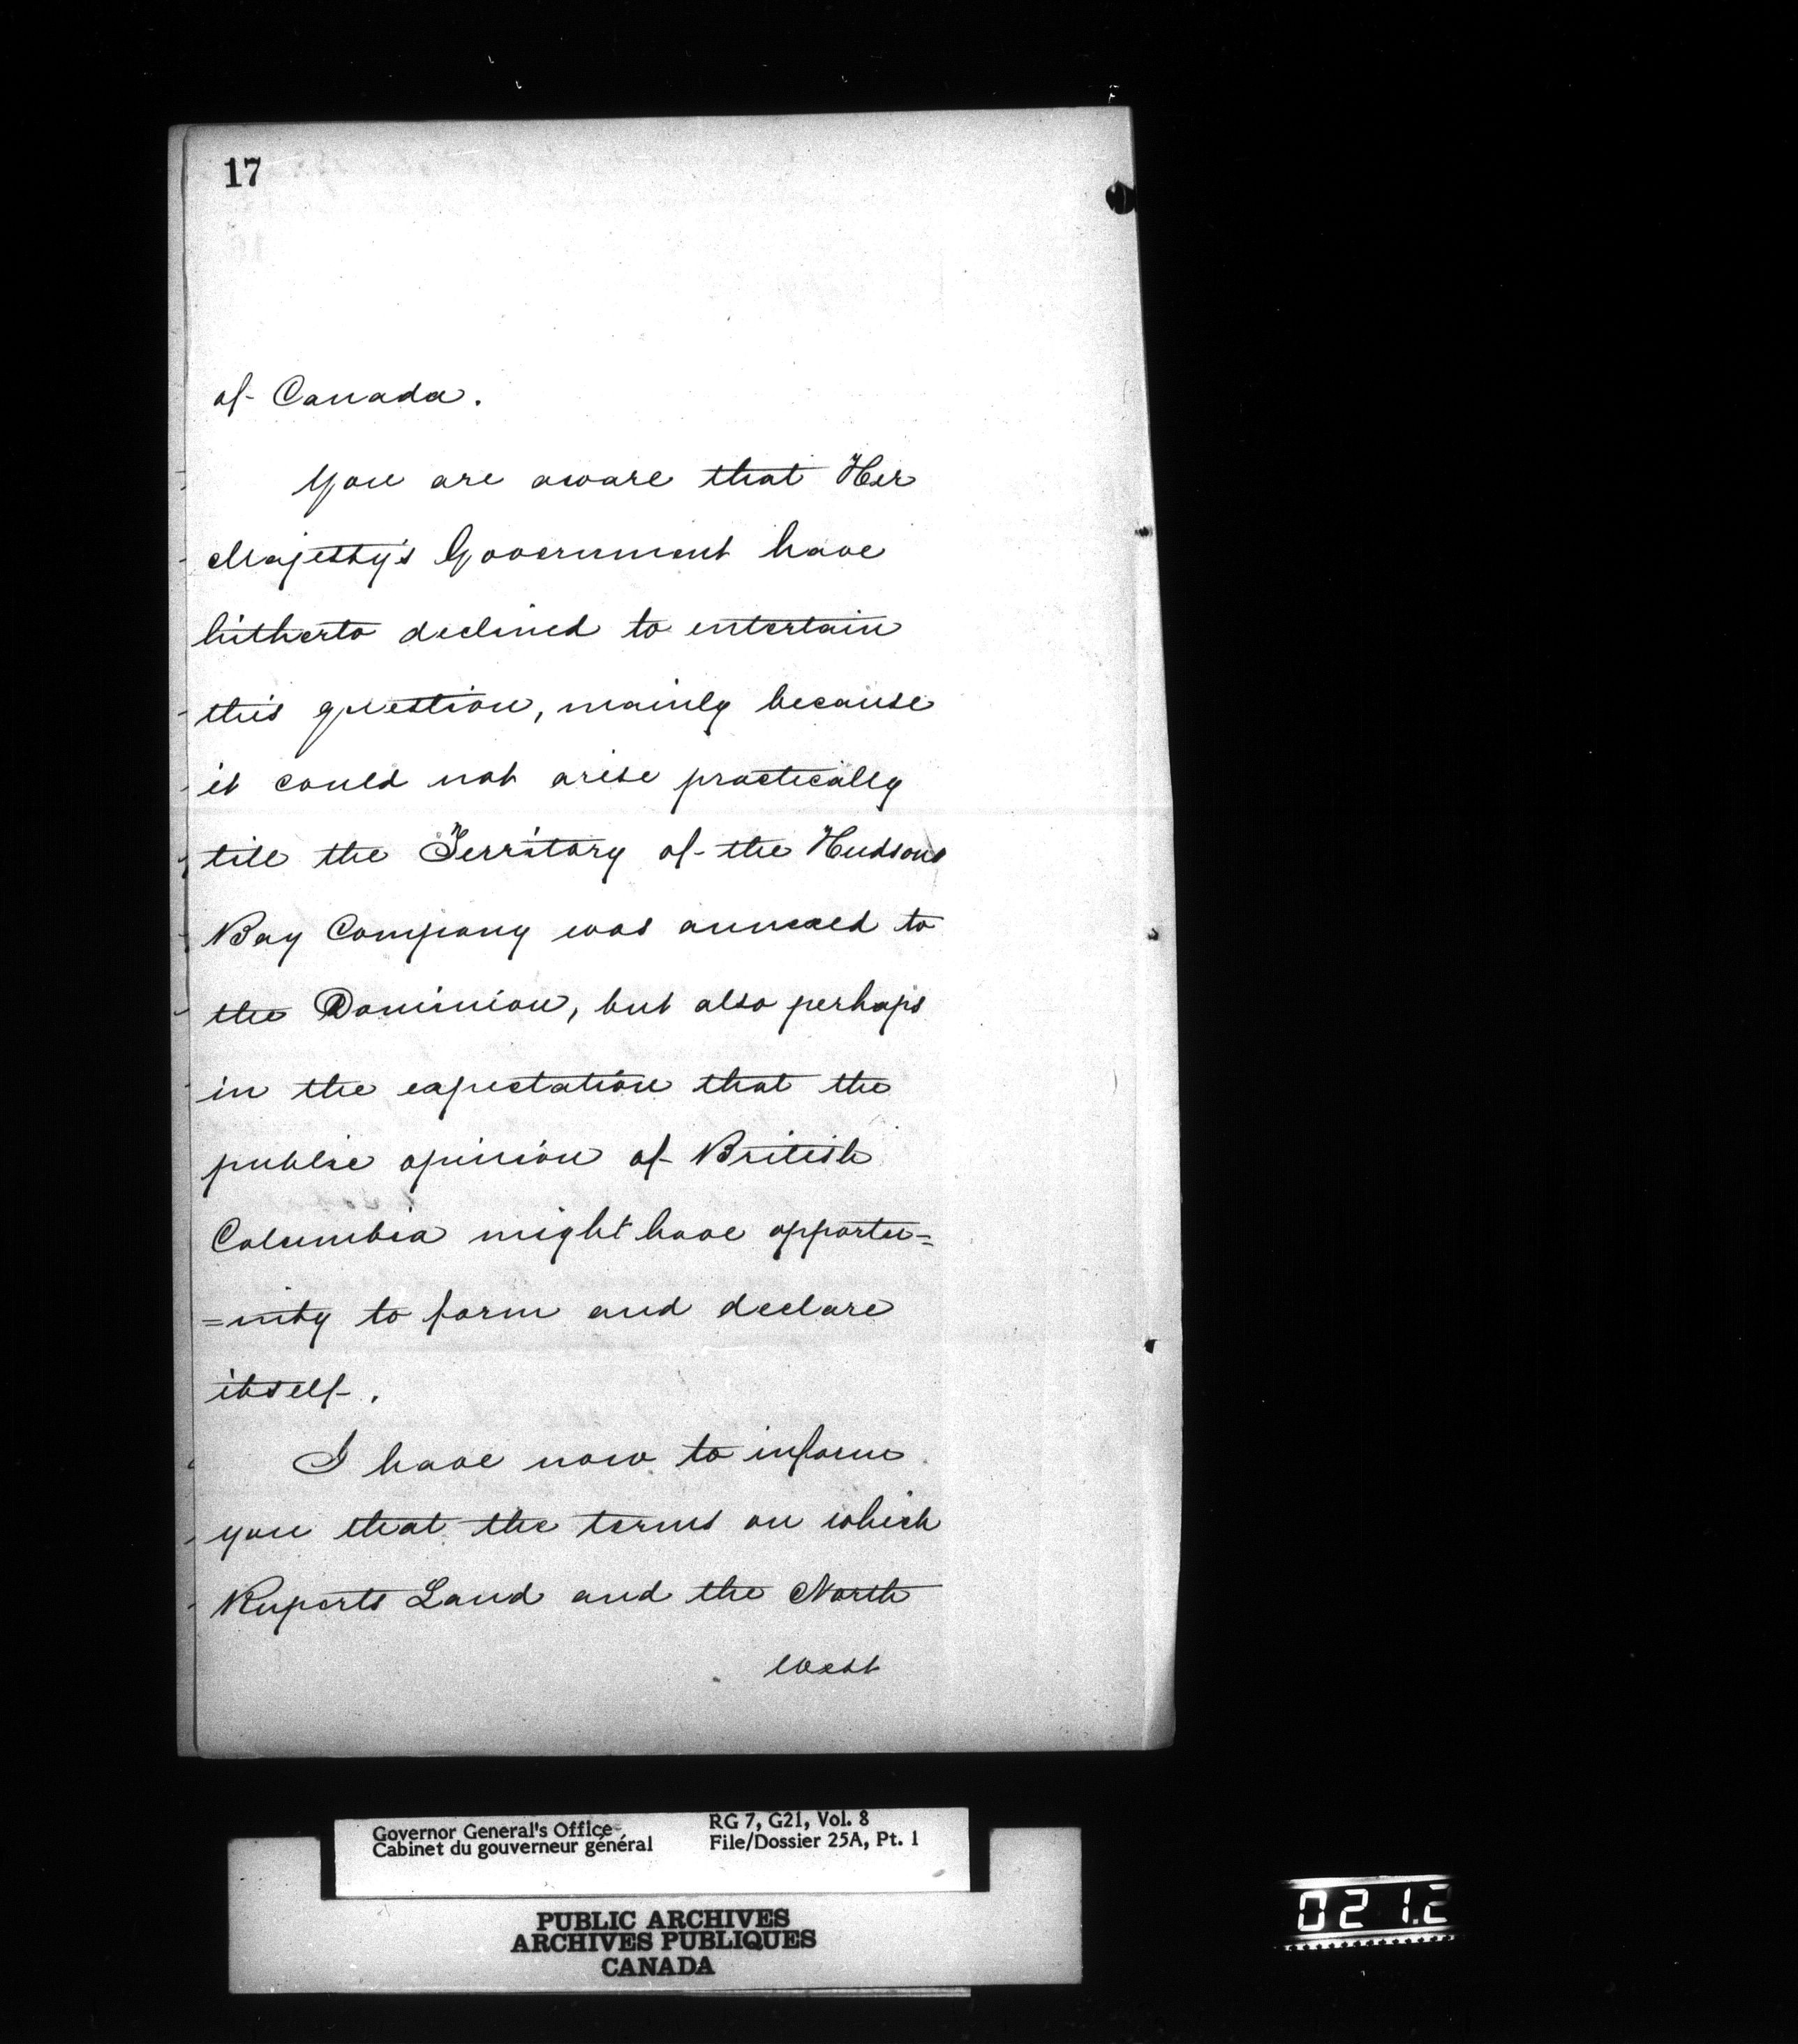 17
of Canada.
You are aware that Her
Majesty's Government have
hitherto declined to entertain
this question, mainly because
it could not arise practically
till the Territory of the Hudsons
Bay Company was annexed to
the Dominion, but also perhaps
in the expectation that the
public opinion of British
Columbia might have opportu=
=nity to form and declare
itself.
I have now to inform
you that the terms on which
Ruperts Land and the North
West
Governor General's Office
Cabinet du gouverneur général
RG 7, G21, Vol. 8
File/Dossier 25A, Pt. 1
PUBLIC ARCHIVES
ARCHIVES PUBLIQUES
CANADA
021.2